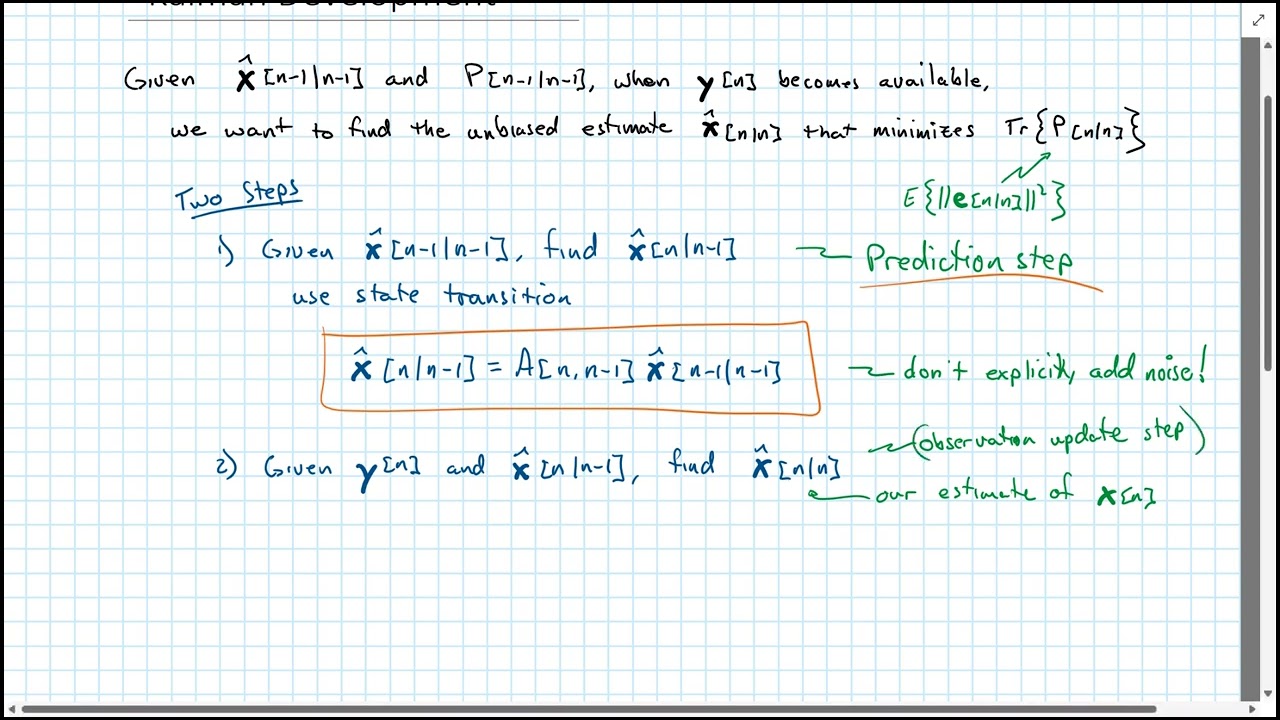 Kalman Development
Given x̂[n-1|n-1] and P[n-1|n-1], when y[n] becomes available,
we want to find the unbiased estimate x̂[n|n] that minimizes Tr{P[n|n]}
E{||e[n|n]||²}
Two Steps
1) Given x̂[n-1|n-1], find x̂[n|n-1]
Prediction step
use state transition
x̂[n|n-1] = A[n,n-1] x̂[n-1|n-1]
don't explicitly add noise!
(observation update step)
2) Given y[n] and x̂[n|n-1], find x̂[n|n]
our estimate of x[n]